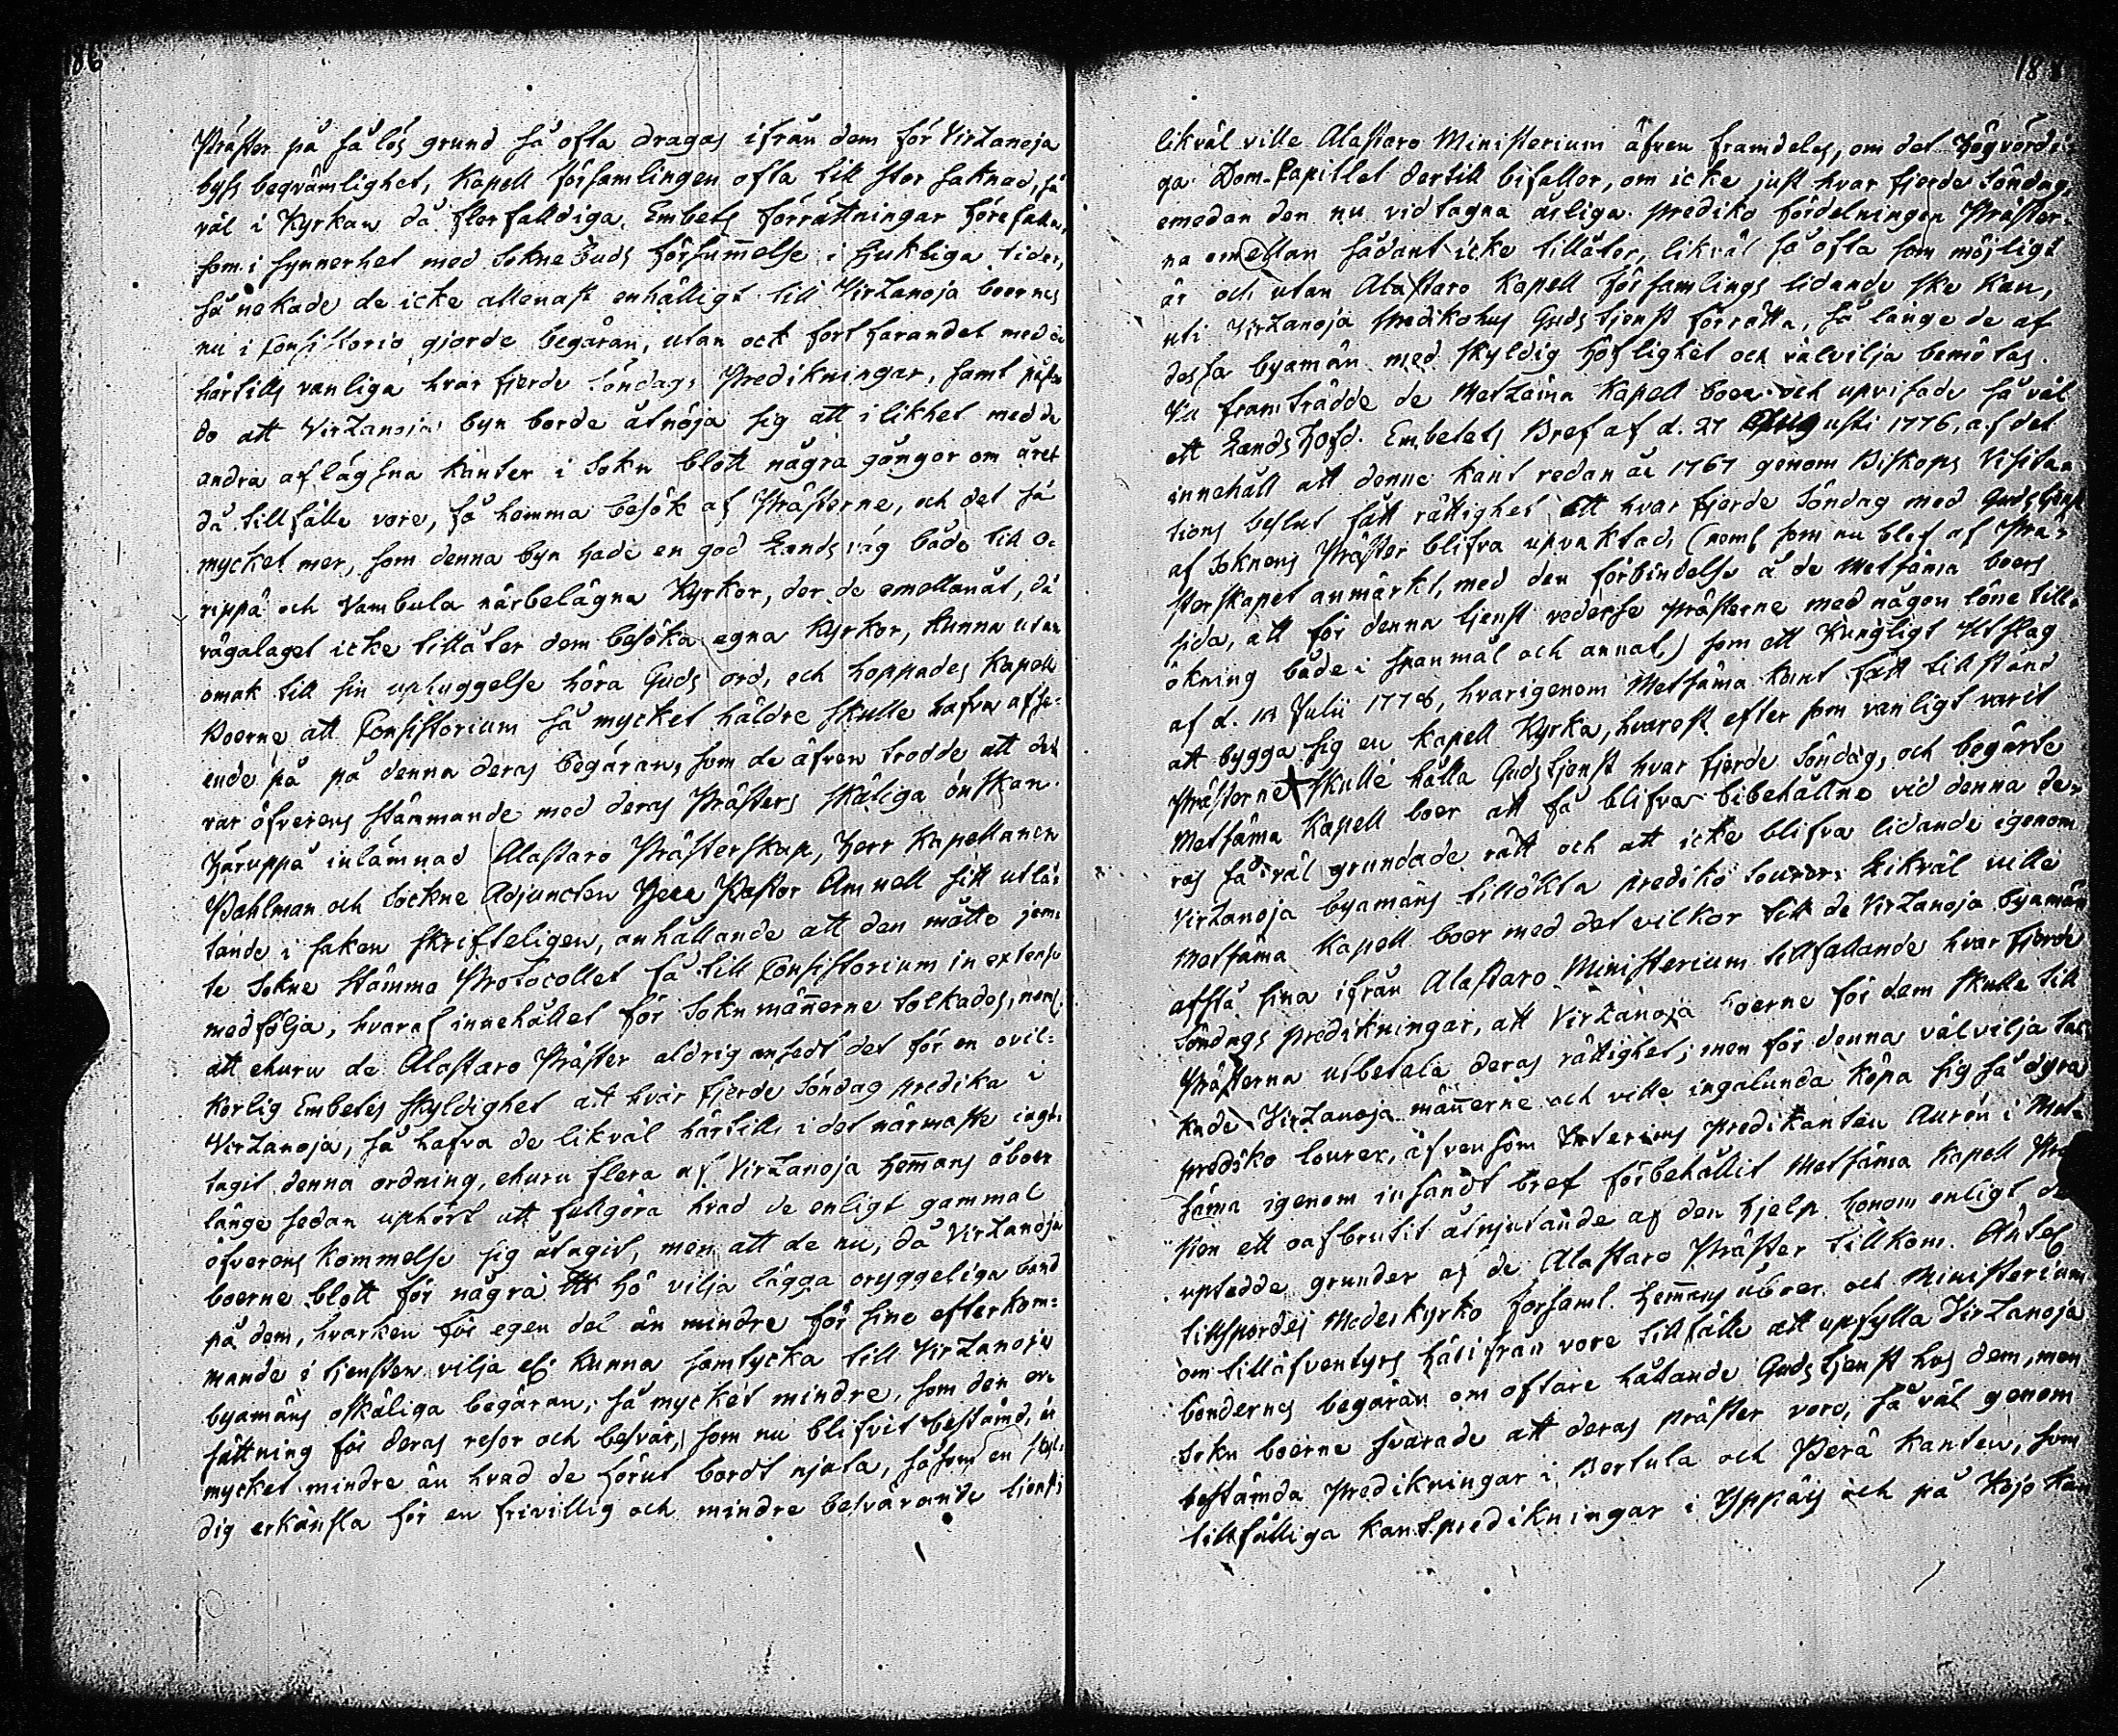 186
Präster på så lös grund så ofta dragas ifrån dem för Virtzanoja
byss beqvämlighet, Kapell församlingen ofta till stor saknad, så
väl i Kyrkan då flerfalldiga Embets förrättningar förefalla,
som i synnerhet med Sokne Buds försummelse i sjukliga tider,
så nekade de icke allenast enhälligt till Virtzanoja boernes
nu i Consistorio gjorde begäran, utan ock fortfarandet med de
härtills vanliga hvar fjerde Söndags Predikningar, samt påstod
do att Virtzanoja byn borde åtnöja sig att i likhet med de
andra aflägsna kanter i Sokn blott några gångor om året
då tillfälle vore, få komma besök af Prästerne, och det så
mycket mer, som denna byn hade en god Landsväg både till O-
rippä och Vambula närbelägna Kyrkor, der de emellanåt, då
vägalaget icke tillåter dem besöka egna Kyrkor, kunna utan
omak till sin upbyggelse höra Guds ord, och hoppades Kapell
Boerne att Consistorium så mycket häldre skulle hafva afse-
ende på på denna deras begäran, som de äfven trodde att den
var öfverens stämmande med deras Prästers skäliga önskan.
Häruppå inlämnad Alastaro Prästerskap, Herr Kapellanen
Pahlman och Sockne Adjuncten Herr Pastor Amnell sitt utlå-
tande i saken skrifteligen, anhållande att den måtte jem-
te Sokne stämma Protocollet få till Consistorium in extenso
medfölja, hvaraf innehållet för Sokn männerne tolkades, neml.
att ehuru de Alastaro Präster aldrig ansedt det för en ovil-
korlig Embetes skyldighet att hvar fjerde Söndag predika i
Virtzanoja, så hafva de likväl härtills i det närmaste iagt-
tagit denna ordning, ehuru flera af Virtzanoja Hemmans åboer
länge sedan uphört att fullgöra hvad de enligt gammal
öfverens kommelse sig åtagit, men att de nu, då Virtzanoja
boerne blott för några ## hö vilja lägga oryggeliga band
på dem, hvarken för egen del än mindre för sine efterkom-
mande i tjensten vilja el. kunna samtycka till Virtzanoja
byamäns oskäliga begäran, så mycket mindre, som den er-
sättning för deras resor och besvär, som nu blifvit bestämd, är
mycket mindre än hvad de förut bordt njuta, såsom en skyl-
dig erkänsla för en frivillig och mindre besvärande tjenst;
18
likväl ville Alastaro Ministerium äfven framdeles, om det Högvördi-
ga Dom-Capitlet dertill bifaller, om icke just hvar fjerde Söndag,
emedan den nu vidtagna årliga prediko fördelningen Präster-
na emellan sådant icke tillåter, likväl så ofta som möjligt
är och utan Alastaro Kapell församlings lidande ske kan,
uti Virtzanoja Predikohus Gudstjenst förrätta, så länge de af
dessa byamän med skyldig höflighet och välvilja bemötas.
Nu framträdde de Metzäma Kapell boer och upvisade så väl
ett Lands Höfd. Embetets Bref af d. 27 Augusti 1776, af det
innehåll att denne kant redan år 1767 genom Biskops Visita-
tions beslut fått rättighet att hvar fjerde Söndag med Gudstjenst
af Soknens Präster blifva upvaktad, (neml. som nu blef af Prä-
sterskapet anmärkt, med den förbindelse å de Metsäma boers
sida, att för denna tjenst vederse Prästerne med någon löne till-
ökning både i spanmål och annat,) som ett Kungligt Utslag
af d. 13 Julii 1778, hvarigenom Metsäma Kant fått tillstånd
att bygga sig en Kapell Kyrka, hvarest efter som vanligt varit
Prästerne skulle hålla Gudstjenst hvar fjerde Söndag, och begärte
Metsäma Kapell boer att få blifva bibehållne vid denna de-
ras så väl grundade rätt och att icke blifva lidande igenom
Virtzanoja byamäns tillökta prediko tourer. Likväl ville
Metsäma Kapell boer med det vilkor till de Virtzanoja byamän
afstå sina ifrån Alastaro Ministerium tillfallande hvar fjerde
Söndags predikningar, att Virtzanoja boerne för dem skulle till
Prästerna utbetala deras rättighet; men för denna välvilja tac-
kade Virtzanoja männerne och ville ingalunda köpa sig så dyra
prediko tourer, äfvensom Interims predikanten Aurén i Met-
säma igenom insändt bref förbehållit Metsäma Kapell
ett oafbrutit åtnjutande af den hjelp honom enligt de
uptedde grunder af de Alastaro Präster tillkom. Äntel.
tillspordes Moderkyrko församl. Hemmans åboer och Ministerium
om tilläfventyrs härifrån vore tillfälle att upfylla Virtzanoja
böndernes begäran om oftare hållande Gudstjenst hos dem, men
Sokn boerne svarade att deras präster vore, så väl genom
bestämda Predikningar i Bertula och Perä Kanten, som
tillfälliga kantspredikningar i Yppäis och på Kojo Kan